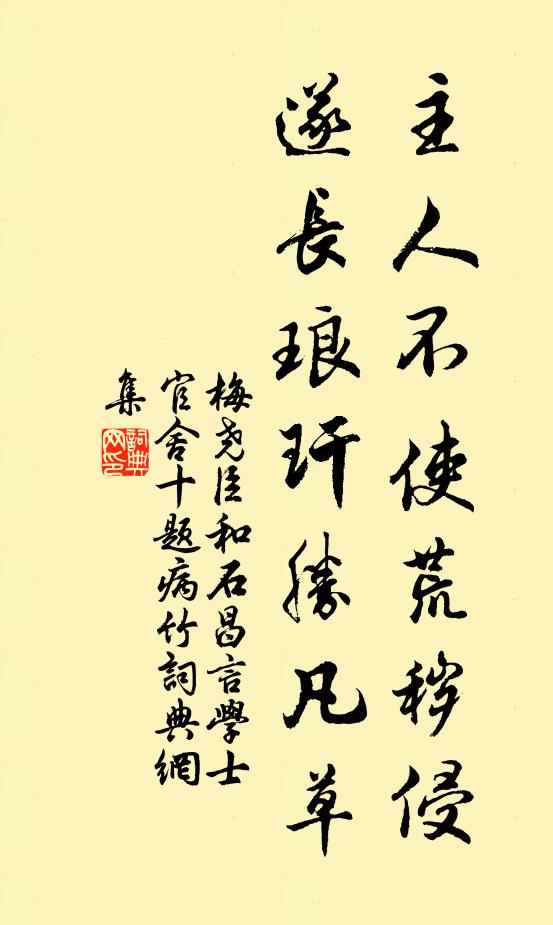 主人不使荒秽侵
遂长琅玕勝凡草
梅尧臣和石昌言學士
官舍十题病竹詞典網
集
詞典网印